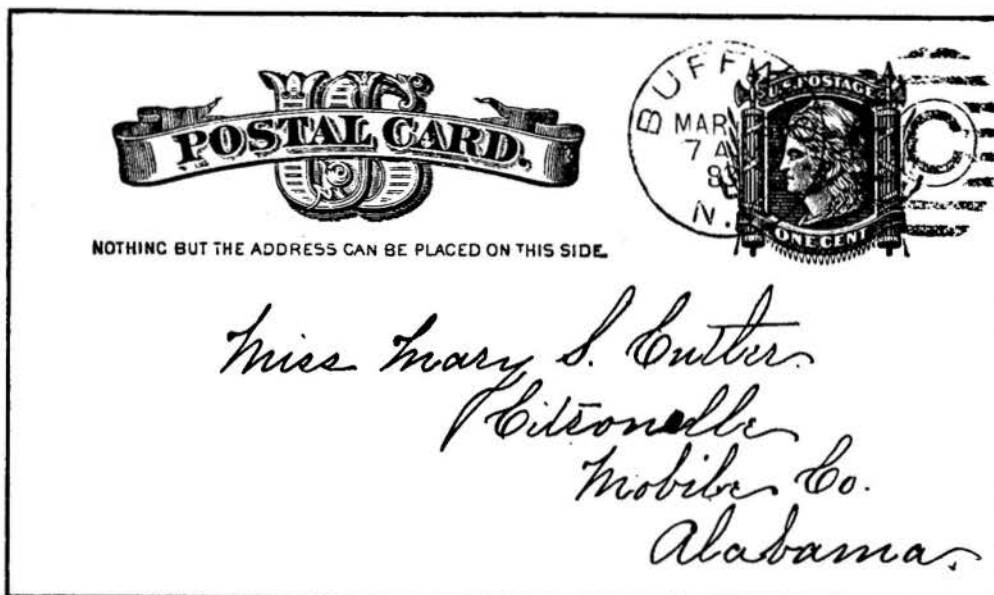 US
POSTAL CARD.
NOTHING BUT THE ADDRESS CAN BE PLACED ON THIS SIDE.
BUFF
MAR
7 A
8
N.
U.S. POSTAGE
ONE CENT
C
Miss Mary S. Cutler
Citronelle
Mobile Co.
Alabama.